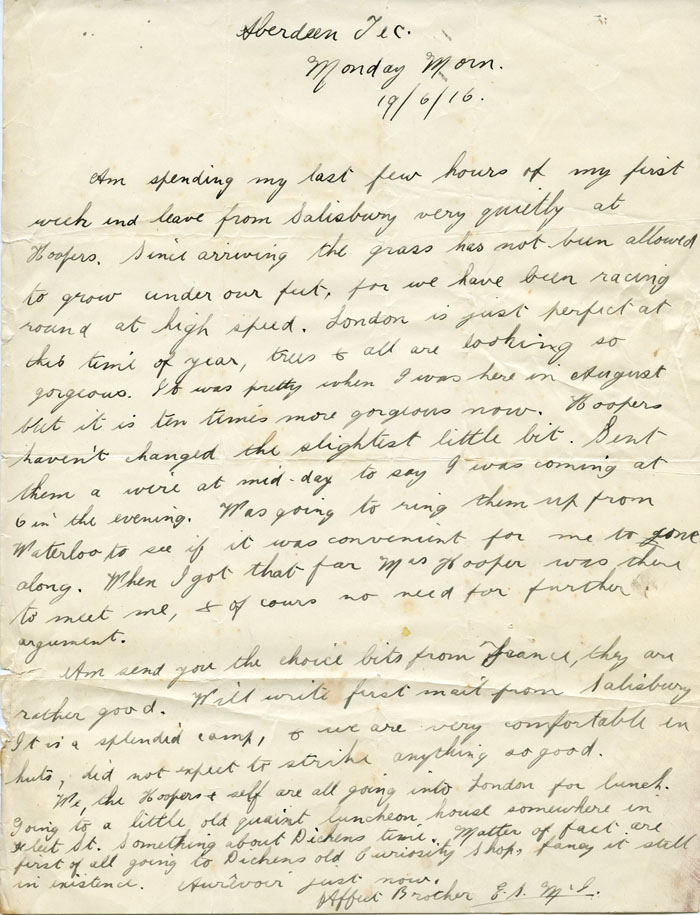 Aberdeen Tec.
Monday Morn.
19/6/16.
Am spending my last few hours of my first
week end leave from Salisbury very quietly at
Hoopers. Since arriving the grass has not been allowed
to grow under our feet, for we have been racing
round at high speed. London is just perfect at
this time of year, trees & all are looking so
gorgeous. It was pretty when I was here in August
but it is ten times more gorgeous now. Hoopers
haven't changed the slightest little bit. Sent
them a wire at mid-day to say I was coming at
6 in the evening. Was going to ring them up from
Waterloo to see if it was convenient for me to
along. When I got that far Mrs Hooper was there
to meet me, & of cours no need for further
argument.
Am send you the choice bits from France, they are
rather good. Will write first mail from Salisbury
It is a splendid camp, & we are very comfortable in
huts, did not expect to strike anything so good.
We, the Hoopers & self are all going into London for lunch.
Going to a little old quaint luncheon house somewhere in
Fleet St. Something about Dickens time. Matter of fact are
first of all going to Dickens old Curiosity Shop, fancy it still
in existence. Aurêvoir just now.
Affect Brother E. S. McI.